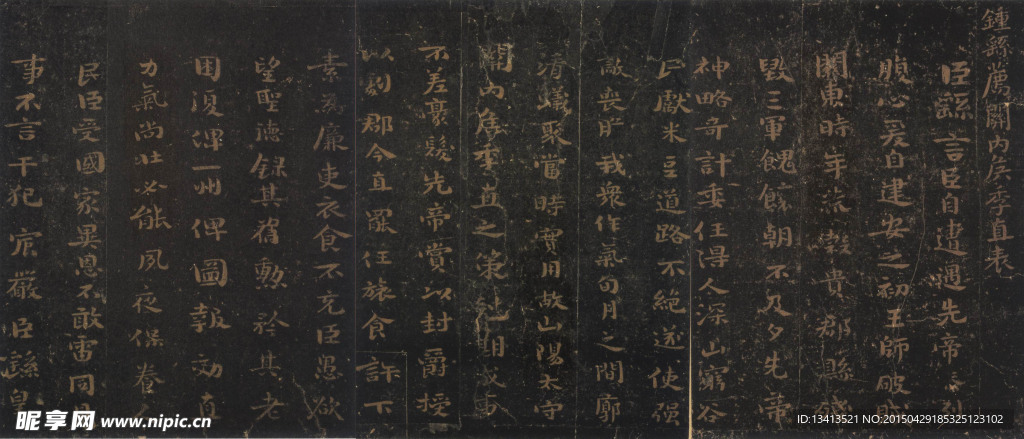 鍾繇薦關內侯季直表
臣繇言臣自遭遇先帝
腹心爰自建安之初王師破
關東時年荒穀貴郡縣
毀三軍餽饟朝不及夕先帝
神略奇計委任得人深山窮谷
民獻米豆道路不絕遂使强
敵喪膽我衆作氣旬月之間廓
清蟻聚當時實用故山陽太守
關內侯季直之策剋期成事
不差豪髮先帝賞以封爵授
以劇郡今直罷任旅食許下
素爲廉吏衣食不充臣愚欲
望聖德錄其舊勳矜其老
困復俾一州俾圖報效直
力氣尚壯必能夙夜保養
民臣受國家異恩不敢雷同
事不言干犯宸嚴臣繇皇
昵享网 www.nipic.cn
ID:13413521 NO:20150429185325123102